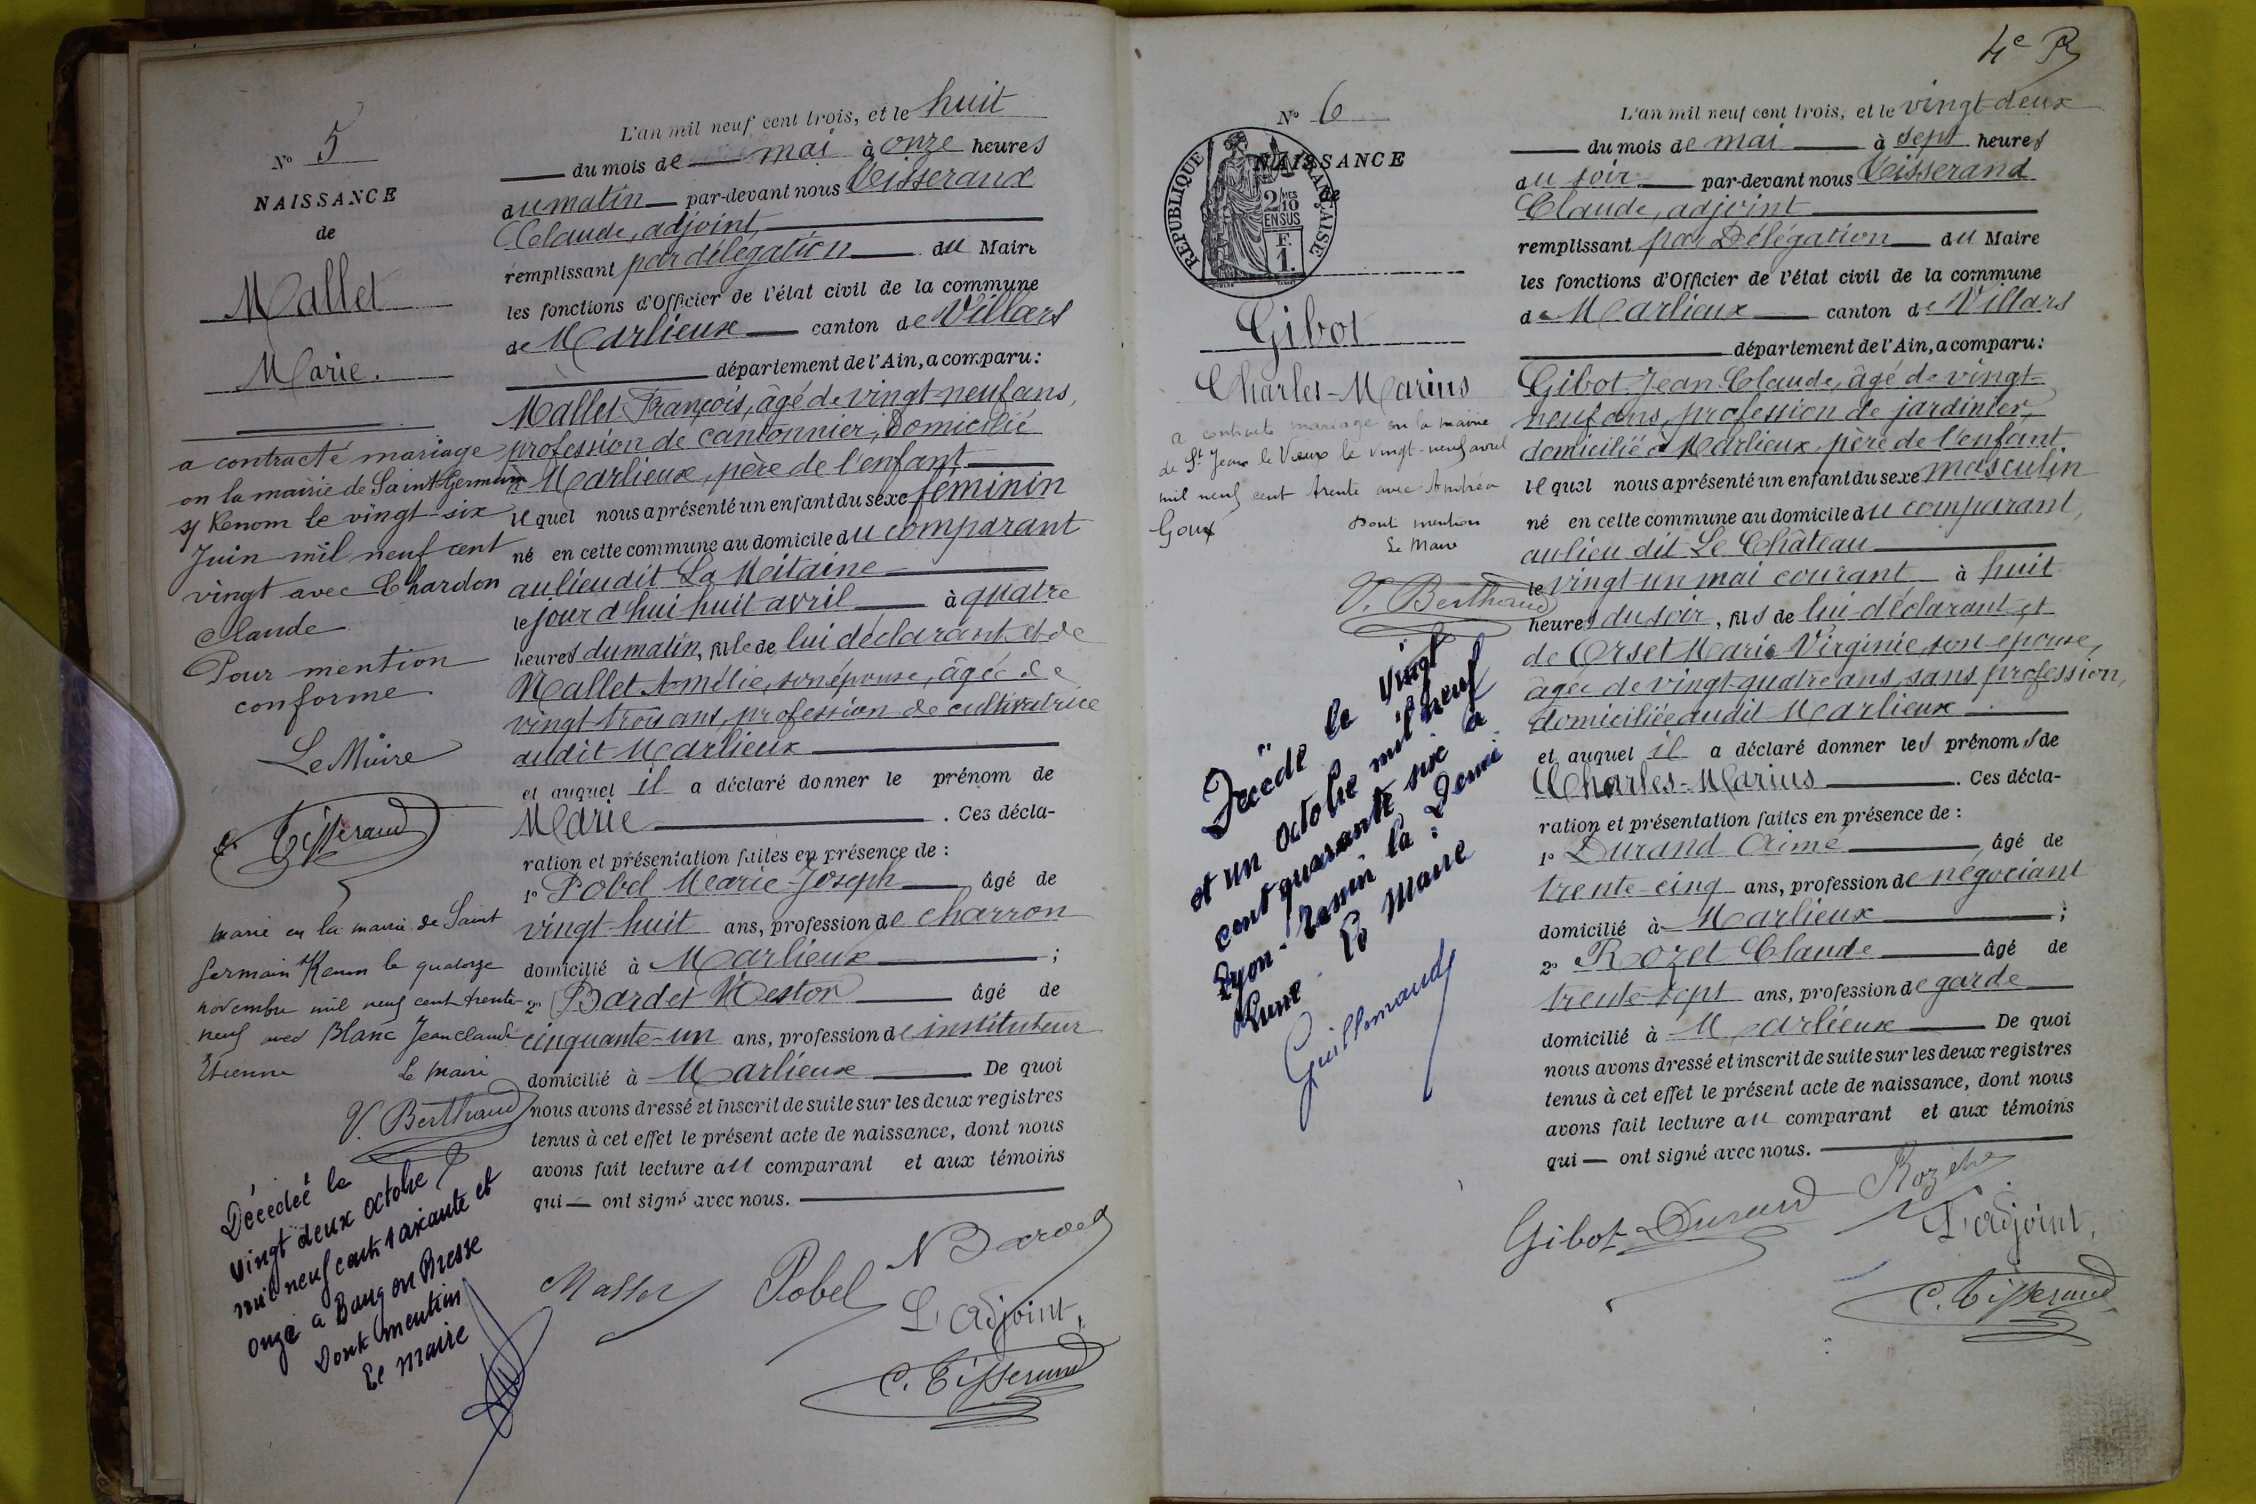 N° 5
NAISSANCE
de
Mallet
Marie.
a contracté mariage
en la mairie de Saint Germain
s/ Renom le vingt-six
Juin mil neuf cent
vingt avec Chardon
Claude
Pour mention
conforme
Le Maire
C. Tisserand
Marié en la mairie de Saint
Germain s/ Renom le quatorze
novembre mil neuf cent trente
neuf avec Blanc Jean Claude
Etienne Le Maire
V. Berthaud
Décédée le
vingt deux octobre
mil neuf cent soixante et
onze à Bourg en Bresse
Dont mention
Le Maire
L'an mil neuf cent trois, et le huit
du mois de mai à onze heures
du matin par-devant nous Teisserand
Claude, adjoint,
remplissant par délégation du Maire
les fonctions d'Officier de l'état civil de la commune
de Marlieux canton de Villars
département de l'Ain, a comparu:
Mallet François, âgé de vingt-neuf ans,
profession de cantonnier, domicilié
à Marlieux, père de l'enfant
lequel nous a présenté un enfant du sexe féminin
né en cette commune au domicile du comparant
au lieu dit La Meitaine
le jour d'hui huit avril à quatre
heures du matin, fille de lui déclarant et de
Mallet Amélie, son épouse, âgée de
vingt trois ans, profession de cultivatrice
audit Marlieux
et auquel il a déclaré donner le prénom de
Marie. Ces décla-
ration et présentation faites en présence de :
1° Pobel Marie-Joseph âgé de
vingt-huit ans, profession de charron
domicilié à Marlieux ;
2° Bardet Nestor âgé de
cinquante-un ans, profession de instituteur
domicilié à Marlieux De quoi
nous avons dressé et inscrit de suite sur les deux registres
tenus à cet effet le présent acte de naissance, dont nous
avons fait lecture au comparant et aux témoins
qui — ont signé avec nous.
Mallet Pobel N Bardet
L'adjoint,
C. Tisserand
4e R
N° 6
NAISSANCE
de
RÉPUBLIQUE FRANÇAISE
2/10 MES
EN SUS
F.
1.
Gibot
Charles-Marius
a contracté mariage en la mairie
de St Jean le Vieux le vingt-neuf avril
mil neuf cent trente avec Andréa
Goux Dont mention
Le Maire
V. Berthaud
Décédé le vingt
et un octobre mil neuf
cent quarante six à
Lyon
Le Maire
Guillemaud
L'an mil neuf cent trois, et le vingt-deux
du mois de mai à sept heures
du soir par-devant nous Teisserand
Claude, adjoint
remplissant par Délégation du Maire
les fonctions d'Officier de l'état civil de la commune
de Marlieux canton de Villars
département de l'Ain, a comparu:
Gibot Jean Claude, âgé de vingt-
neuf ans, profession de jardinier,
domicilié à Marlieux, père de l'enfant
lequel nous a présenté un enfant du sexe masculin
né en cette commune au domicile du comparant,
au lieu dit Le Château
le vingt-un mai courant à huit
heures du soir, fils de lui déclarant et
de Orset Marie Virginie, son épouse,
âgée de vingt-quatre ans, sans profession,
domiciliée audit Marlieux
et auquel il a déclaré donner les prénoms de
Charles-Marius. Ces décla-
ration et présentation faites en présence de :
1° Durand Aimé âgé de
trente-cinq ans, profession de négociant
domicilié à Marlieux ;
2° Rozet Claude âgé de
trente-sept ans, profession de garde
domicilié à Marlieux De quoi
nous avons dressé et inscrit de suite sur les deux registres
tenus à cet effet le présent acte de naissance, dont nous
avons fait lecture au comparant et aux témoins
qui — ont signé avec nous.
Gibot Durand
L'adjoint,
C. Tisserand